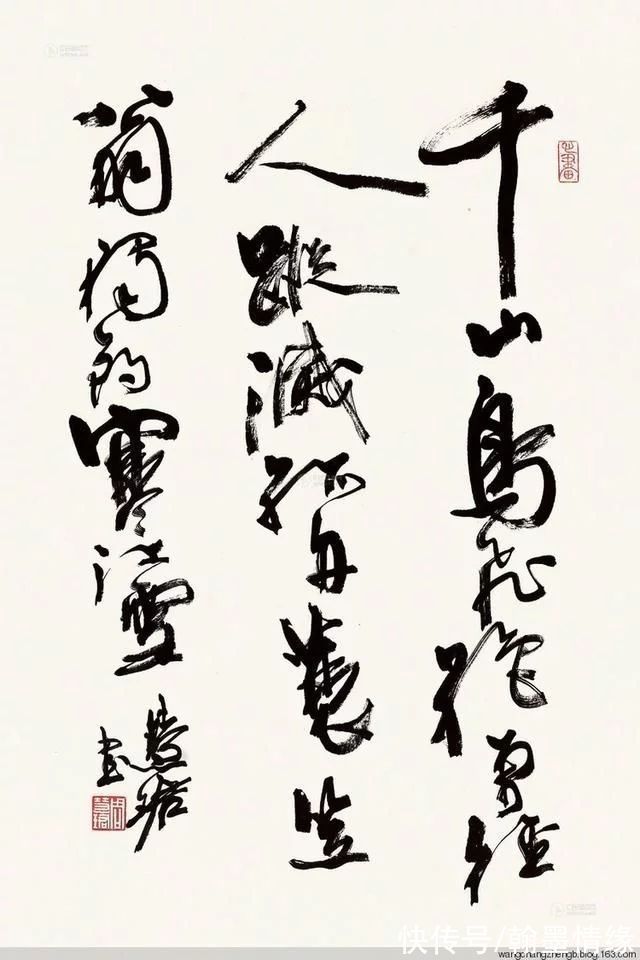 千山鳥飛絕萬徑
人蹤滅孤舟蓑笠
翁獨釣寒江雪
慧珺
书
快传号/翰墨情缘
wangchangzhengb.blog.163.com